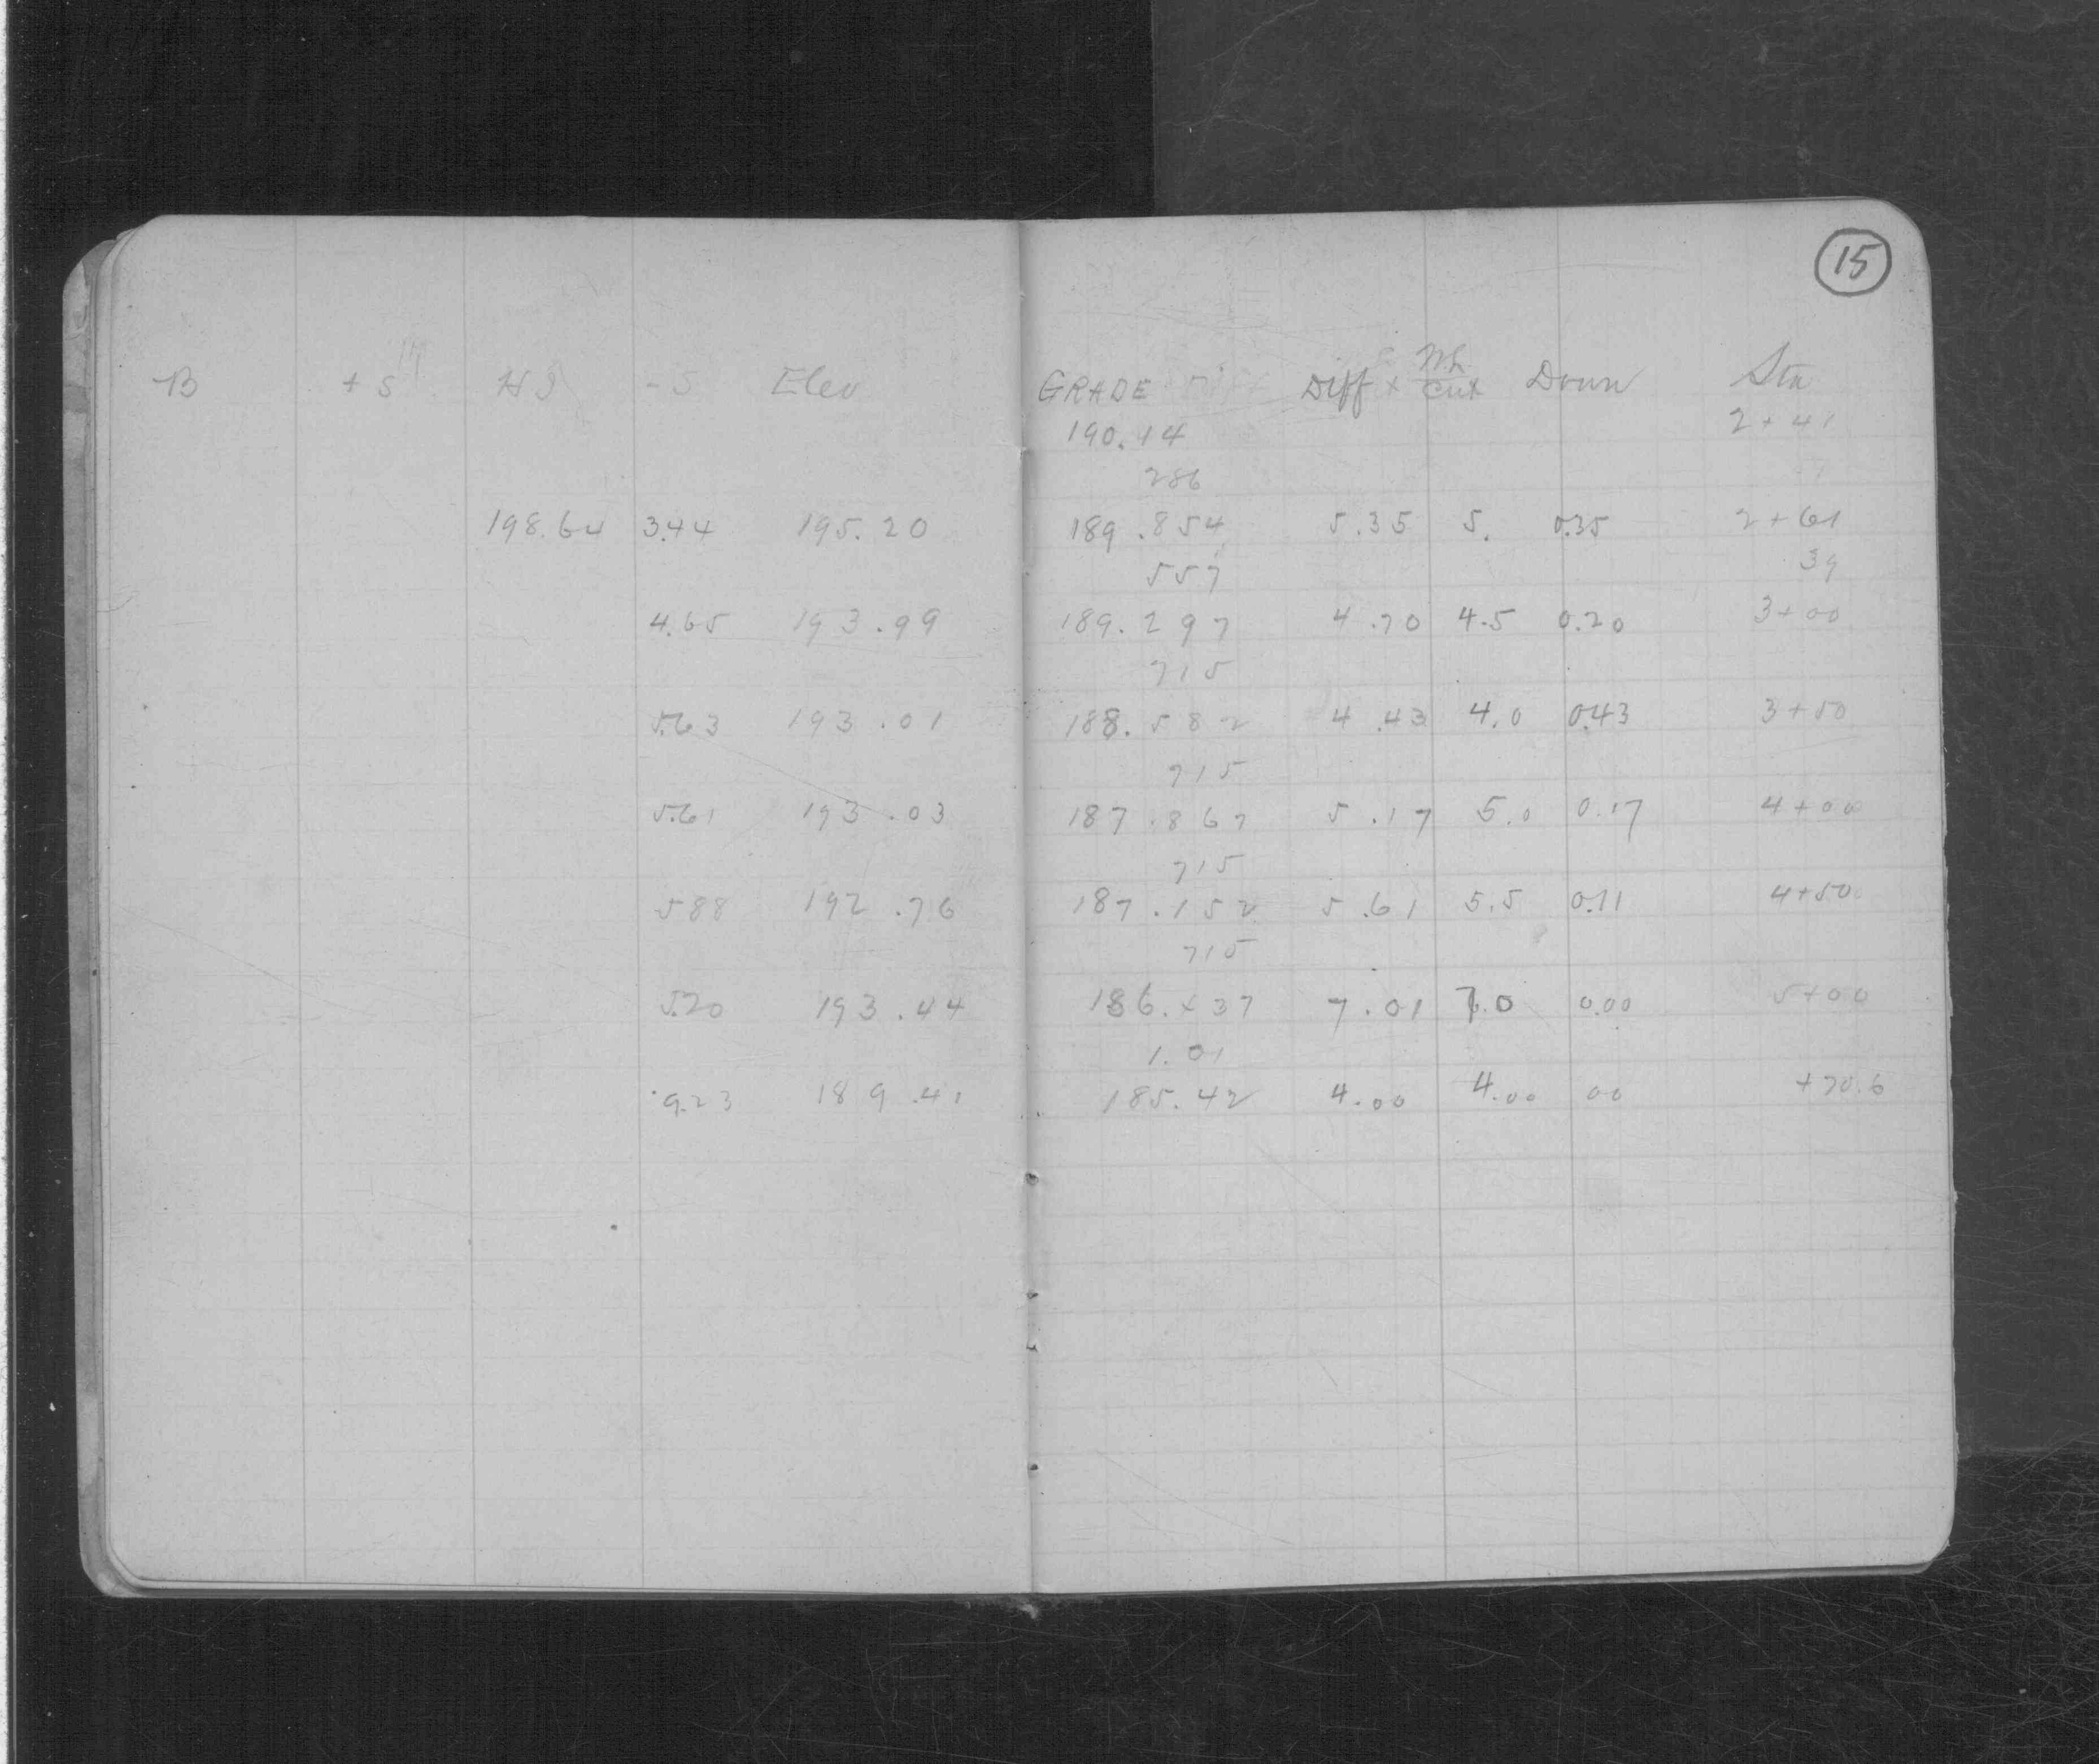 15
B +S HI -S Elev GRADE Diff Cut Down Sta
190.14 2+41
286
198.64 3.44 195.20 189.854 5.35 5. 0.35 2+61
557 39
4.65 193.99 189.297 4.70 4.5 0.20 3+00
715
5.63 193.01 188.582 4.43 4.0 0.43 3+50
715
5.61 193.03 187.867 5.17 5.0 0.17 4+00
715
5.88 192.76 187.152 5.61 5.5 0.11 4+50
715
5.20 193.44 186.437 7.01 7.0 0.00 5+00
1.01
9.23 189.41 185.42 4.00 4.00 00 +70.6